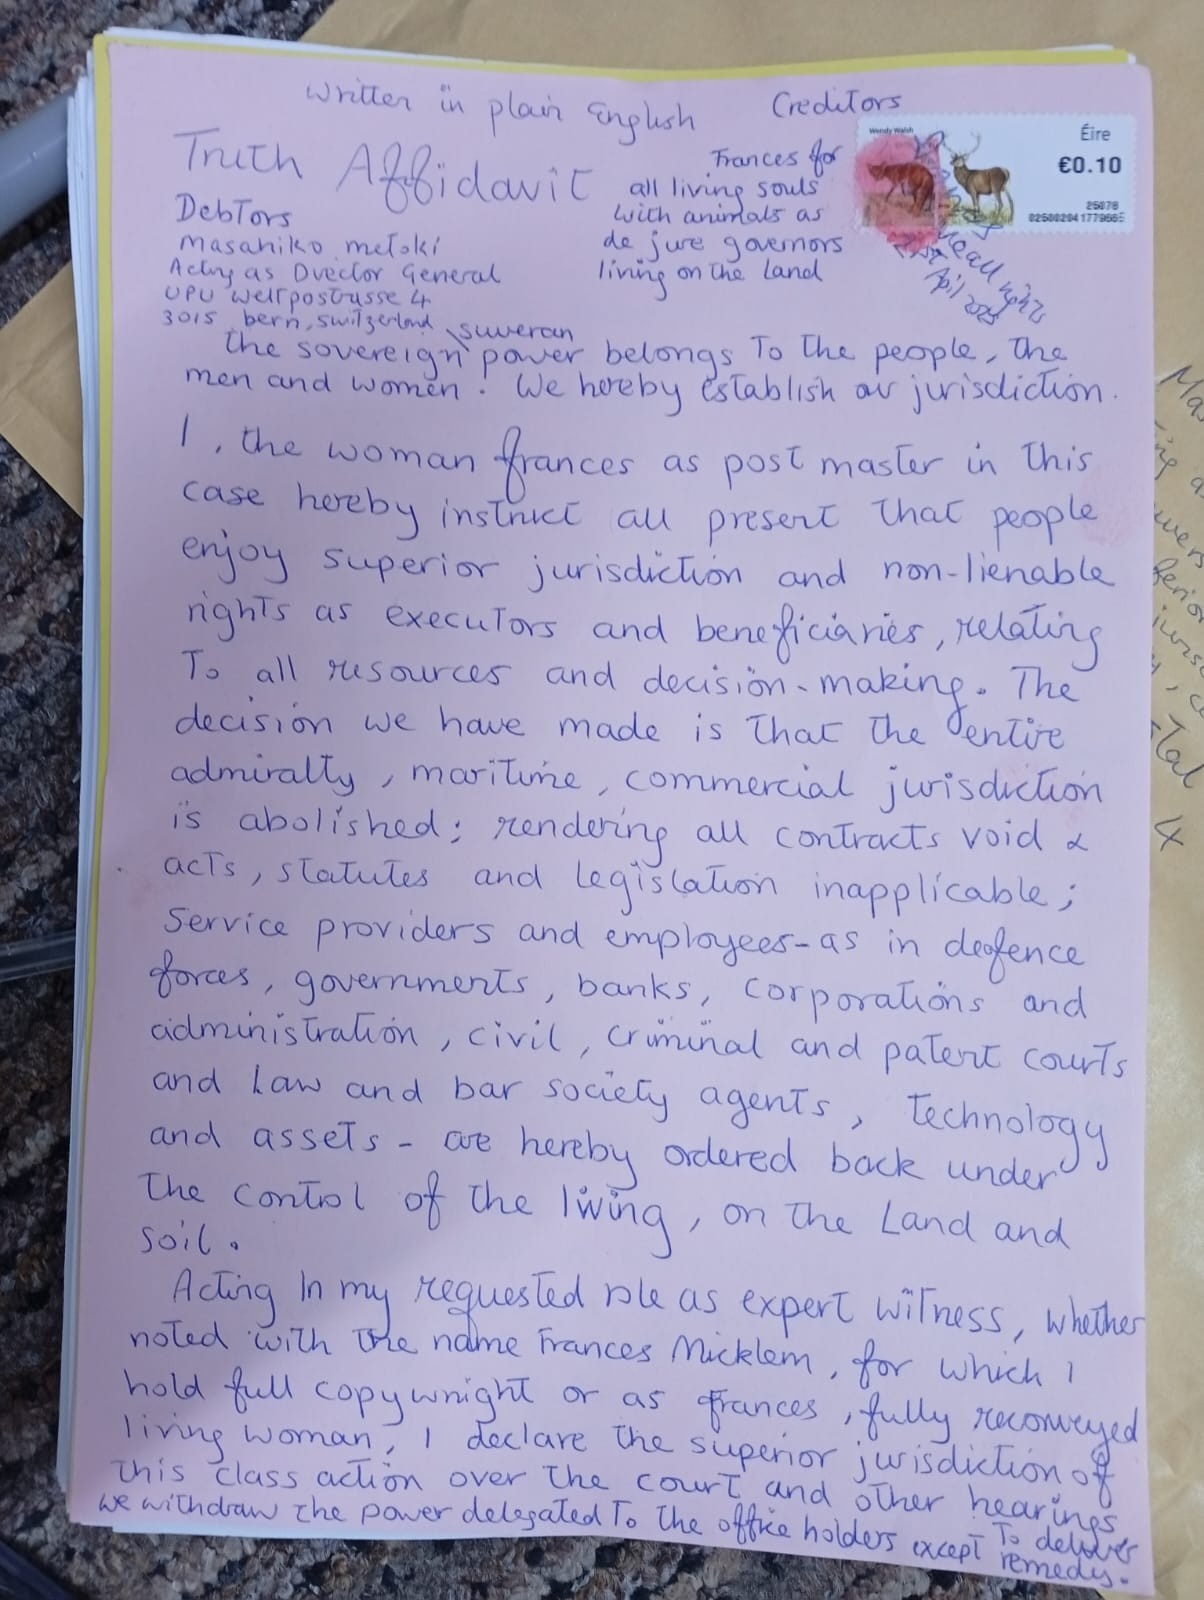 Written in plain English
Creditors
Truth Affidavit
Frances for
all living souls
with animals as
de jure governors
living on the land
Wendy Walsh
Éire
€0.10
25078
DebTors
Masahiko metoki
Acting as Director General
UPU Weltpostrasse 4
3015 bern, switzerland
21st April 2025
suveran
the sovereign power belongs to the people, the
men and women. We hereby establish our jurisdiction.
I, the woman frances as post master in this
case hereby instruct all present that people
enjoy superior jurisdiction and non-lienable
rights as executors and beneficiaries, relating
To all resources and decision-making. The
decision we have made is that the entire
admiralty, maritime, commercial jurisdiction
is abolished; rendering all contracts void &
acts, statutes and legislation inapplicable;
Service providers and employees-as in defence
forces, governments, banks, corporations and
administration, civil, criminal and patent courts
and Law and bar society agents, technology
and assets - are hereby ordered back under
the control of the living, on the Land and
soil.
Acting in my requested role as expert witness, whether
noted with the name Frances Micklem, for which I
hold full copywright or as frances, fully reconveyed
living woman, I declare the superior jurisdiction of
this class action over the court and other hearings
we withdraw the power delegated to the office holders except to deliver
remedy.